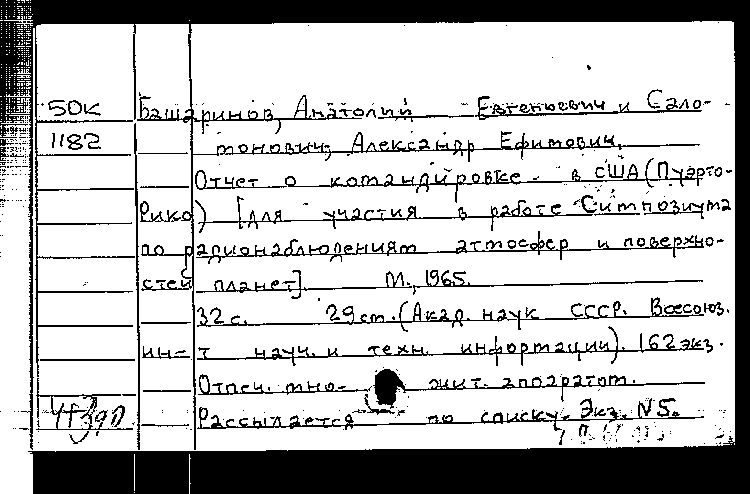 50К Башаринов, Анатолий Евгеньевич и Сало-
1182 монович, Александр Ефимович.
Отчет о командировке в США (Пуэрто-
Рико) [для участия в работе Симпозиума
по радионаблюдениям атмосфер и поверхно-
стей планет]. М., 1965.
32 с. 29 см. (Акад. наук СССР. Всесоюз.
ин-т науч. и техн. информации). 162 экз.
Отпеч. мно- жит. аппаратом.
Рассылается по списку. Экз. N5.